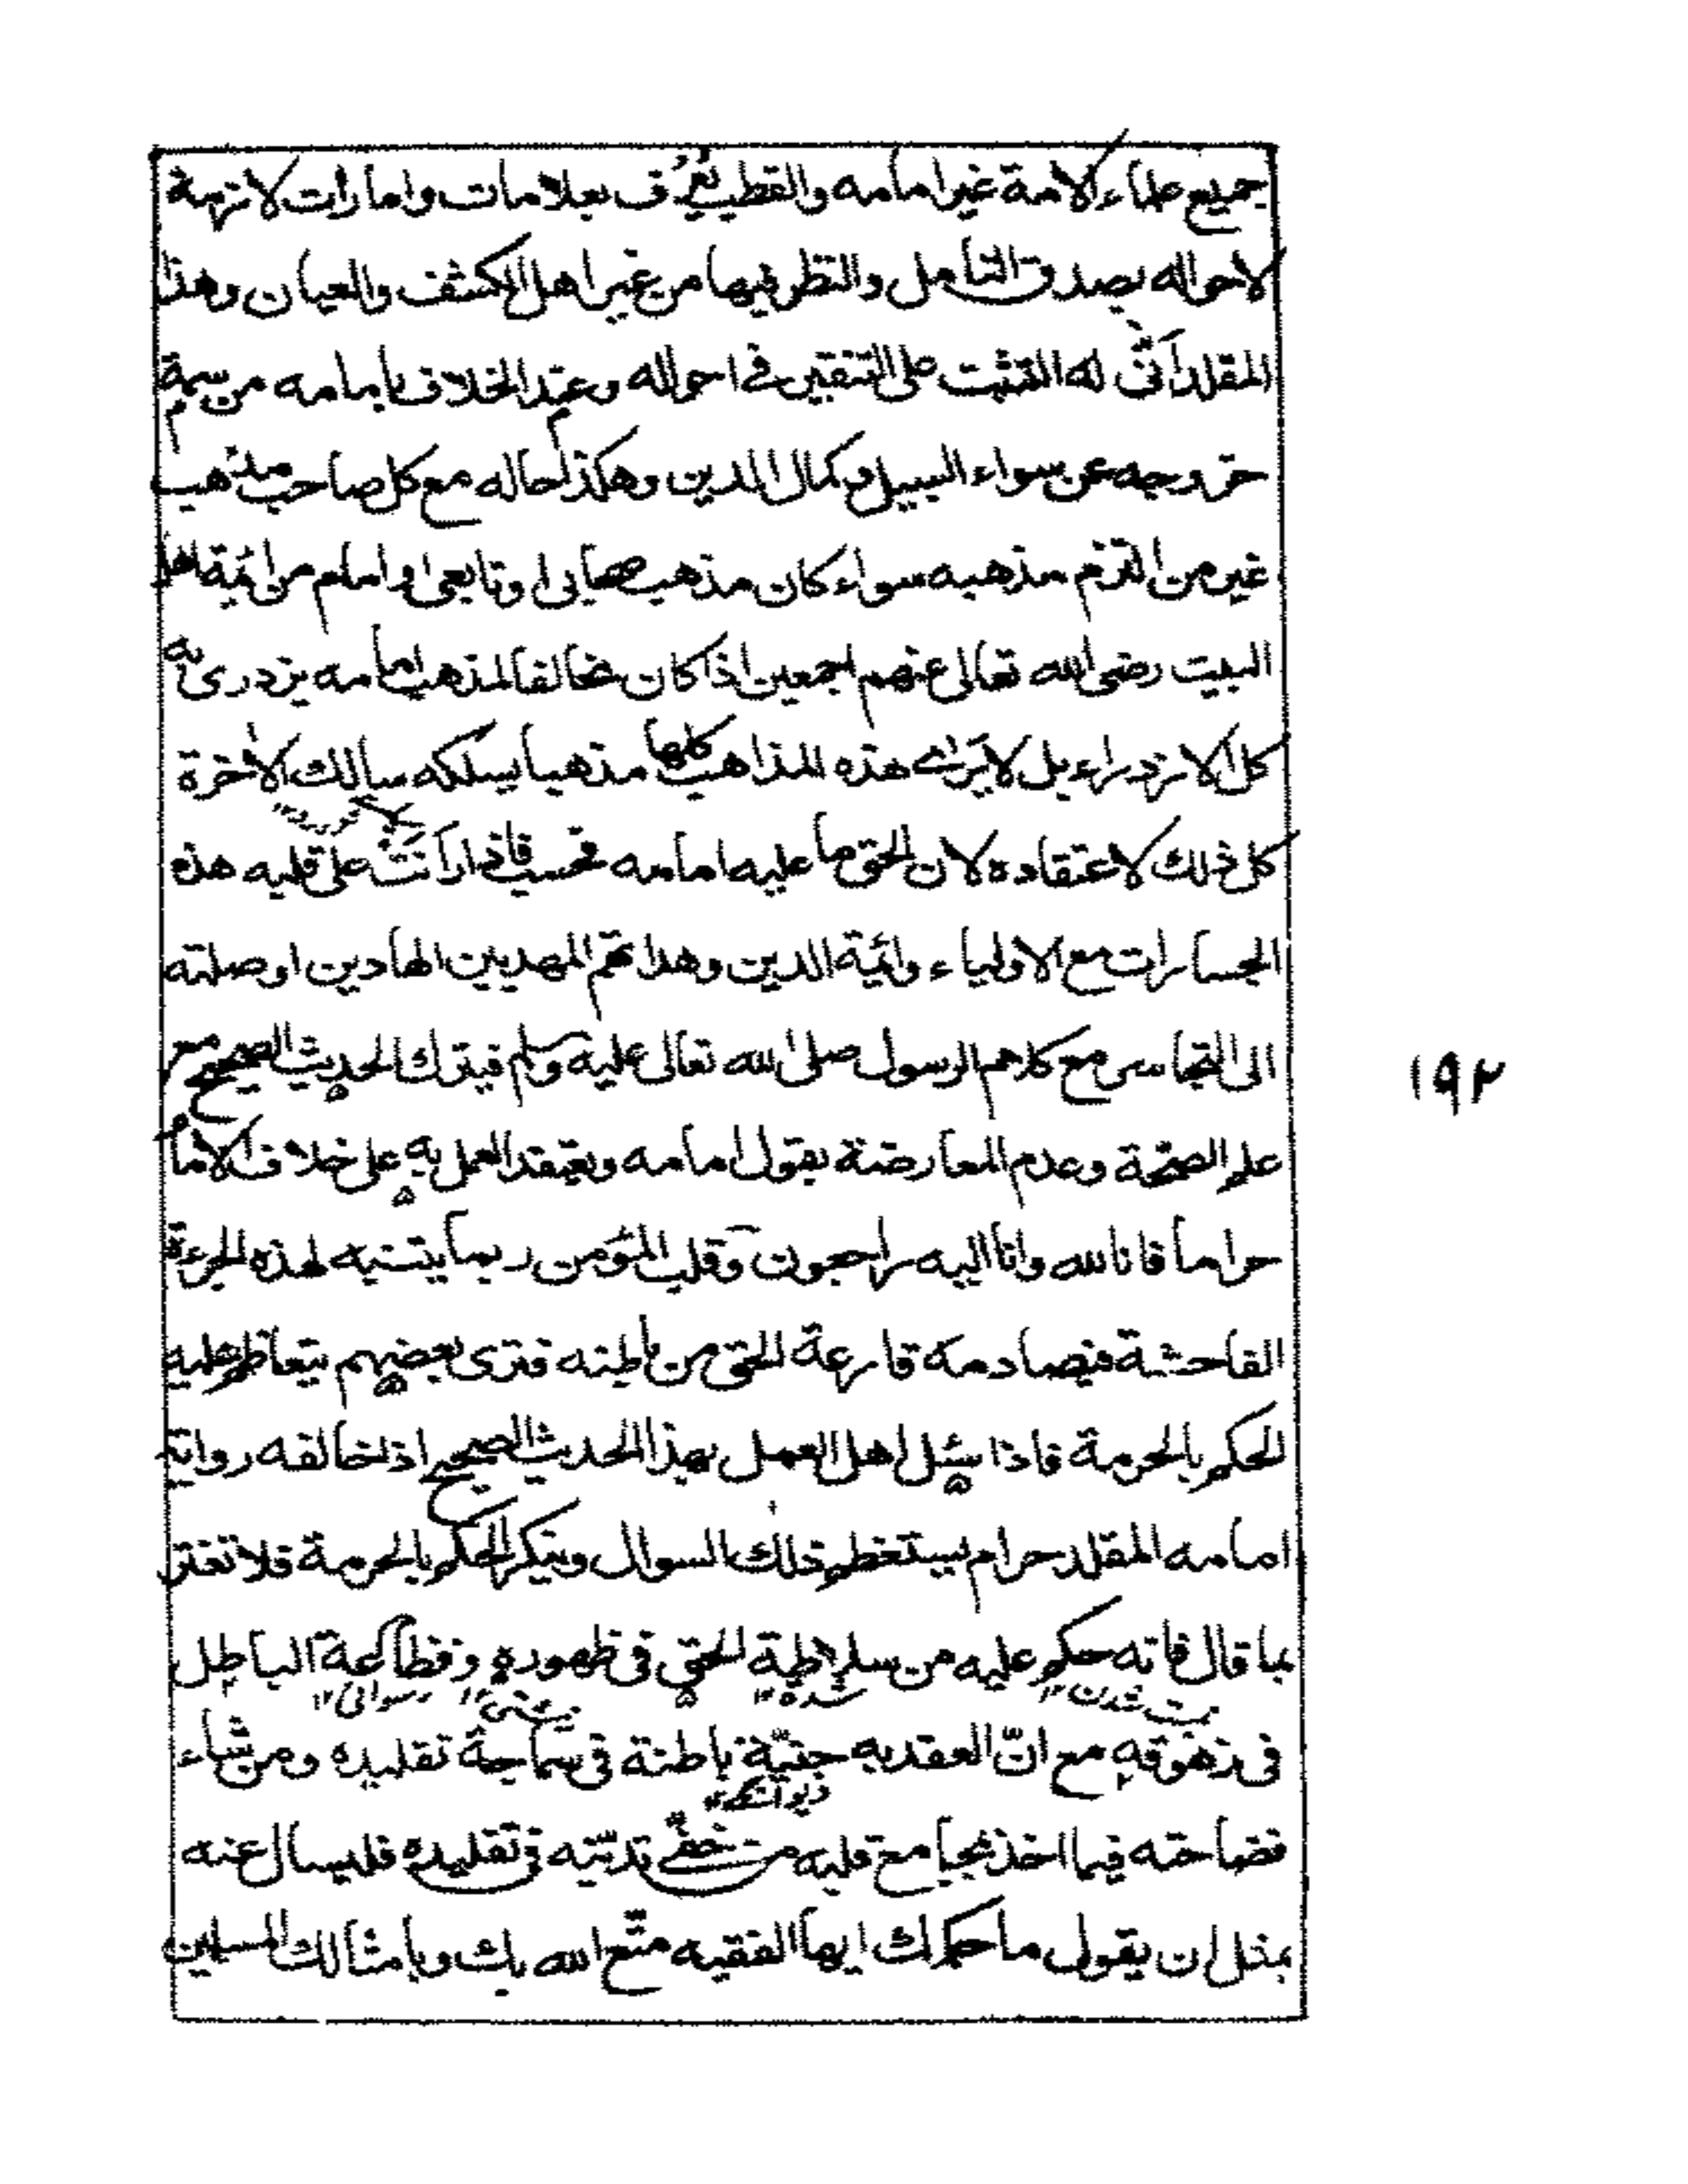 جميع علماء الامة غير امامه والقطب يُعرَف بعلامات وامارات لازمة
لاحواله يصدق التأمل والنظر فيها من غير اهل الكشف والعيان وهذا
المقلد اَنّٰى له التثبت على التنقير في احواله وعند الخلاف بامامه من سمة
خروجه عن سواء السبيل وكمال الدين وهكذا حاله مع كل صاحب مذهب
غير من التزم مذهبه سواء كان مذهب صحابى او تابعى او امام من ائمة اهل
البيت رضى الله تعالى عنهم اجمعين اذا كان مخالفا لمذهب امامه يزدرى به
كل الازدراء بل لا يرى هذه المذاهب كلها مذهبا يسلكه سالك الاخرة
كل ذلك لاعتقاده لان الحق ما عليه امامه فحسب فاذا رانت على قلبه هذه
الجسارات مع الاولياء وائمة الدين وهداتهم المهديين الهادين اوصلته
الى التجاسر مع كلام الرسول صلى الله تعالى عليه وسلم فيترك الحديث الصحيح مع
علم الصحّة وعدم المعارضة بقول امامه ويعتقد العمل به على خلاف الامام
حراما فانا لله وانا اليه راجعون وقلب المؤمن ربما يتنبه لهذه الجرءة
الفاحشة فيصادمه قارعة الحق من باطنه فترى بعضهم يتعاظم عليه
الحكم بالحرمة فاذا سئل اهل العمل بهذا الحديث الصحيح اذا خالفه رواية
امامه المقلد حرام يستعظم ذلك السوال وينكر الحكم بالحرمة فلا تغتر
بما قال فانه حكم عليه من سلاطة الحق فى ظهوره وفظاعة الباطل
شدن ۱۲ شده ۱۲ رسوائى ۱۲
فى زهوقه مع انّ العقد به جنيّة باطنة فى سماجة تقليده ومن شاء
ديوانگى ۱۲
فضاحته فيما اخذ بمجامع قلبه من خفى تدينه فى تقليده فليسال عنه
بمثل ان يقول ما حكمك ايها الفقيه متّع الله بك وبامثالك المسلمين
۱۹۲